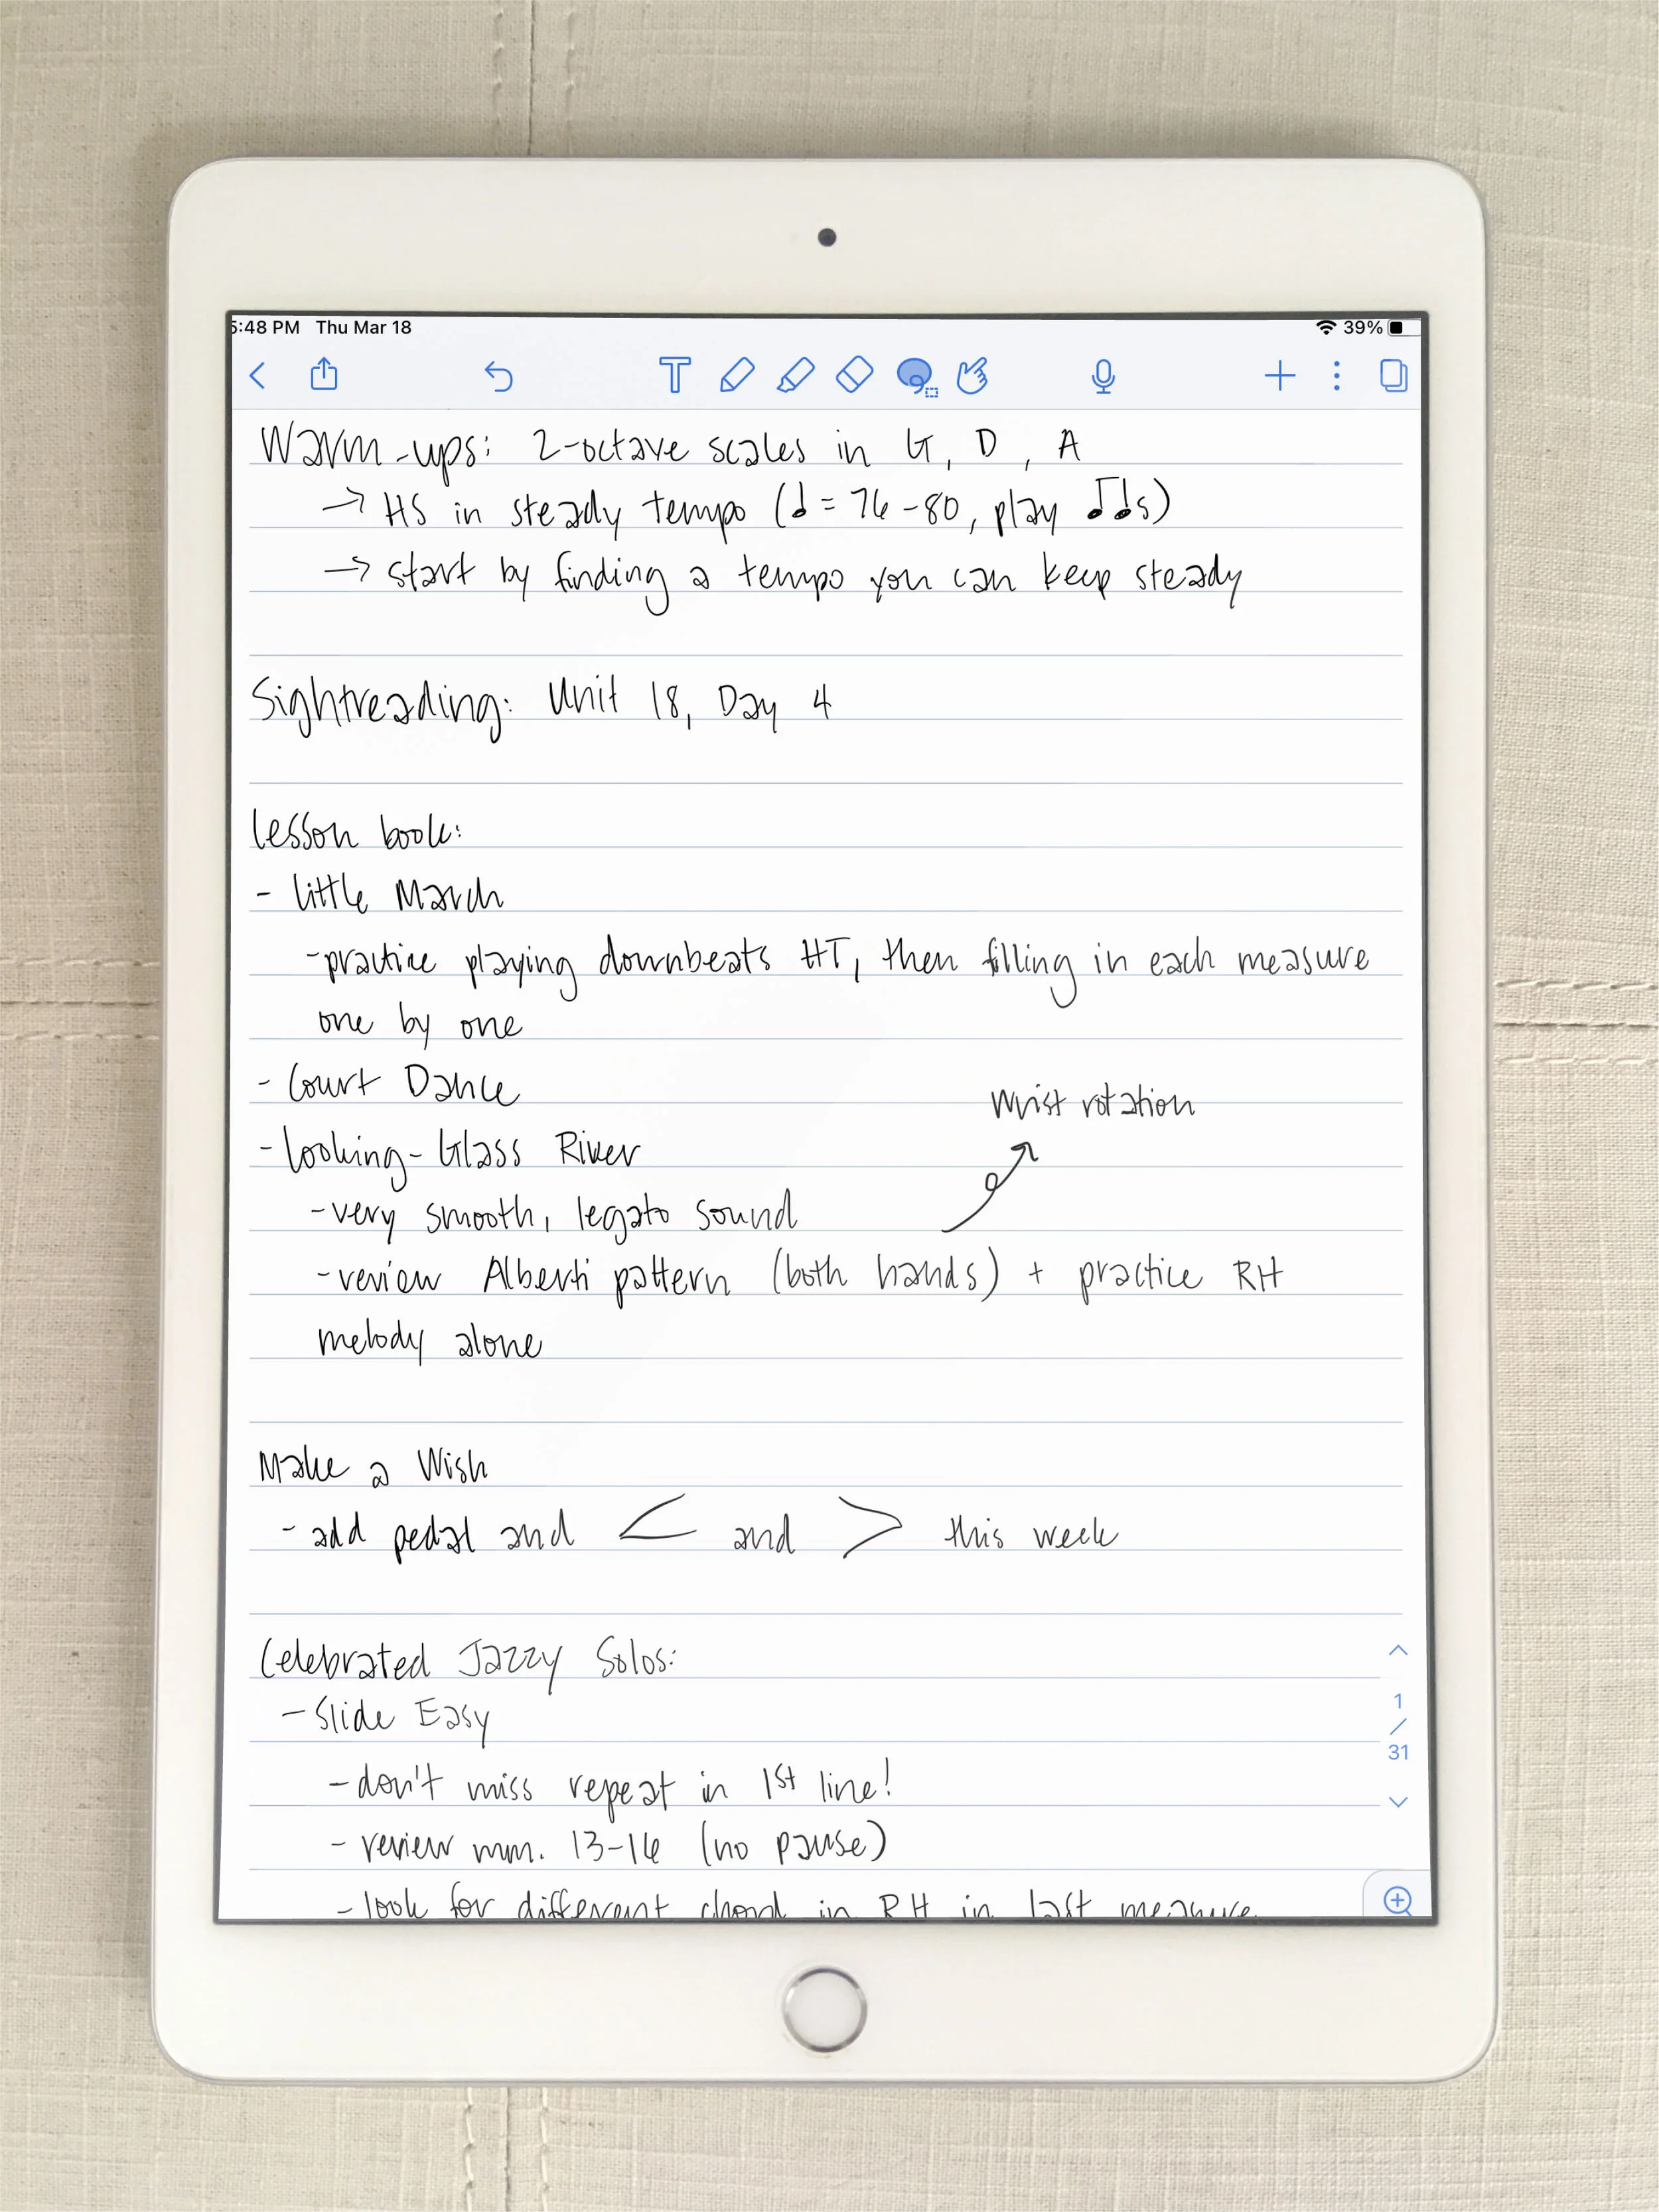 5:48 PM Thu Mar 18 39%
Warm-ups: 2-octave scales in G, D, A
→ HS in steady tempo (♩ = 76-80, play ♫s)
→ start by finding a tempo you can keep steady
Sightreading: Unit 18, Day 4
Lesson book:
- Little March
- practice playing downbeats HT, then filling in each measure
one by one
- Court Dance
wrist rotation
- Looking-Glass River
- very smooth, legato sound
- review Alberti pattern (both hands) + practice RH
melody alone
Make a Wish
- add pedal and < and > this week
Celebrated Jazzy Solos:
- Slide Easy
1
/
31
- don't miss repeat in 1st line!
- review mm. 13-16 (no pause)
- look for different chord in RH in last measure